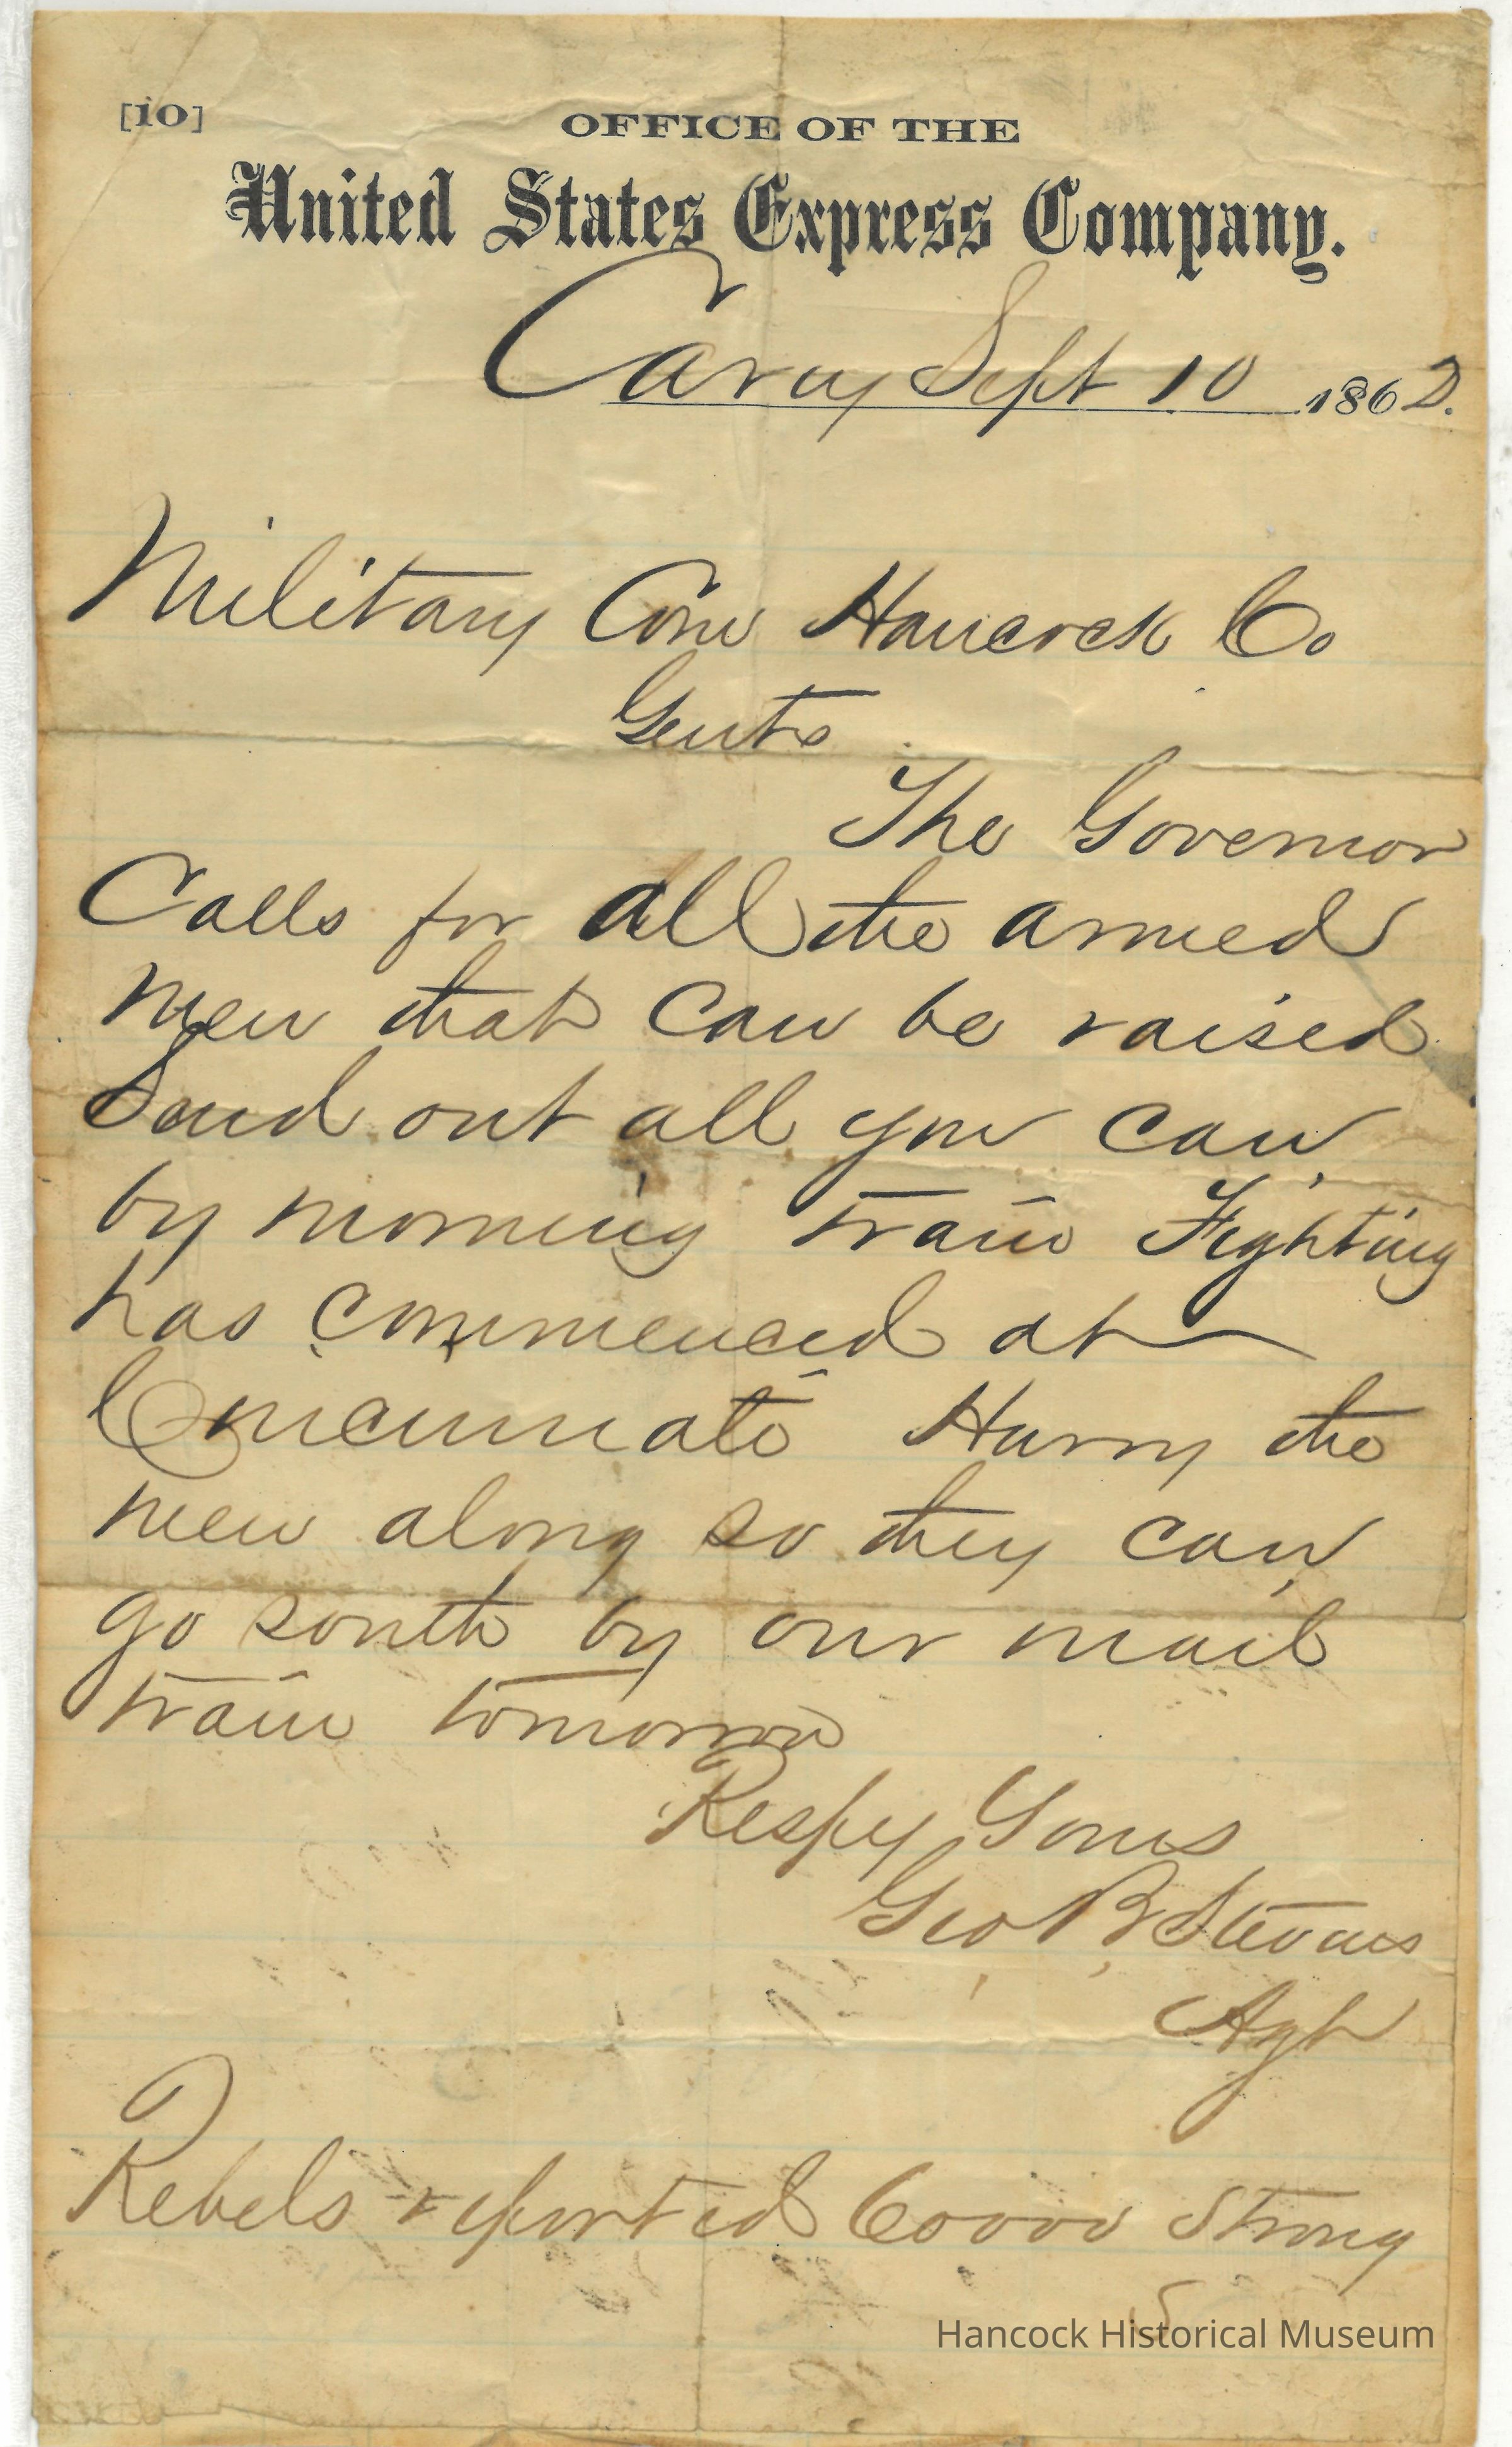 [10]
OFFICE OF THE
United States Express Company.
Carey Sept 10 1862.
Military Com Hancock Co
Gents
The Governor
Calls for all the armed
men that can be raised
Send out all you can
by morning train Fighting
has commenced at
Cincinnati Hurry the
men along so they can
go south by our mail
train tomorrow
Respy Yours
Geo B Stevens
Agt
Rebels reported 60000 strong
Hancock Historical Museum